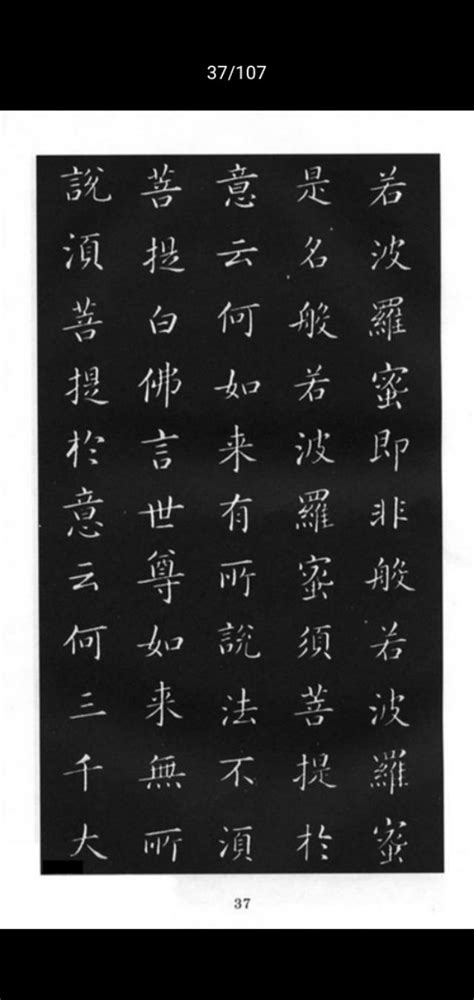 37/107
若波羅蜜即非般若波羅蜜
是名般若波羅蜜須菩提於
意云何如来有所說法不須
菩提白佛言世尊如来無所
說須菩提於意云何三千大
37